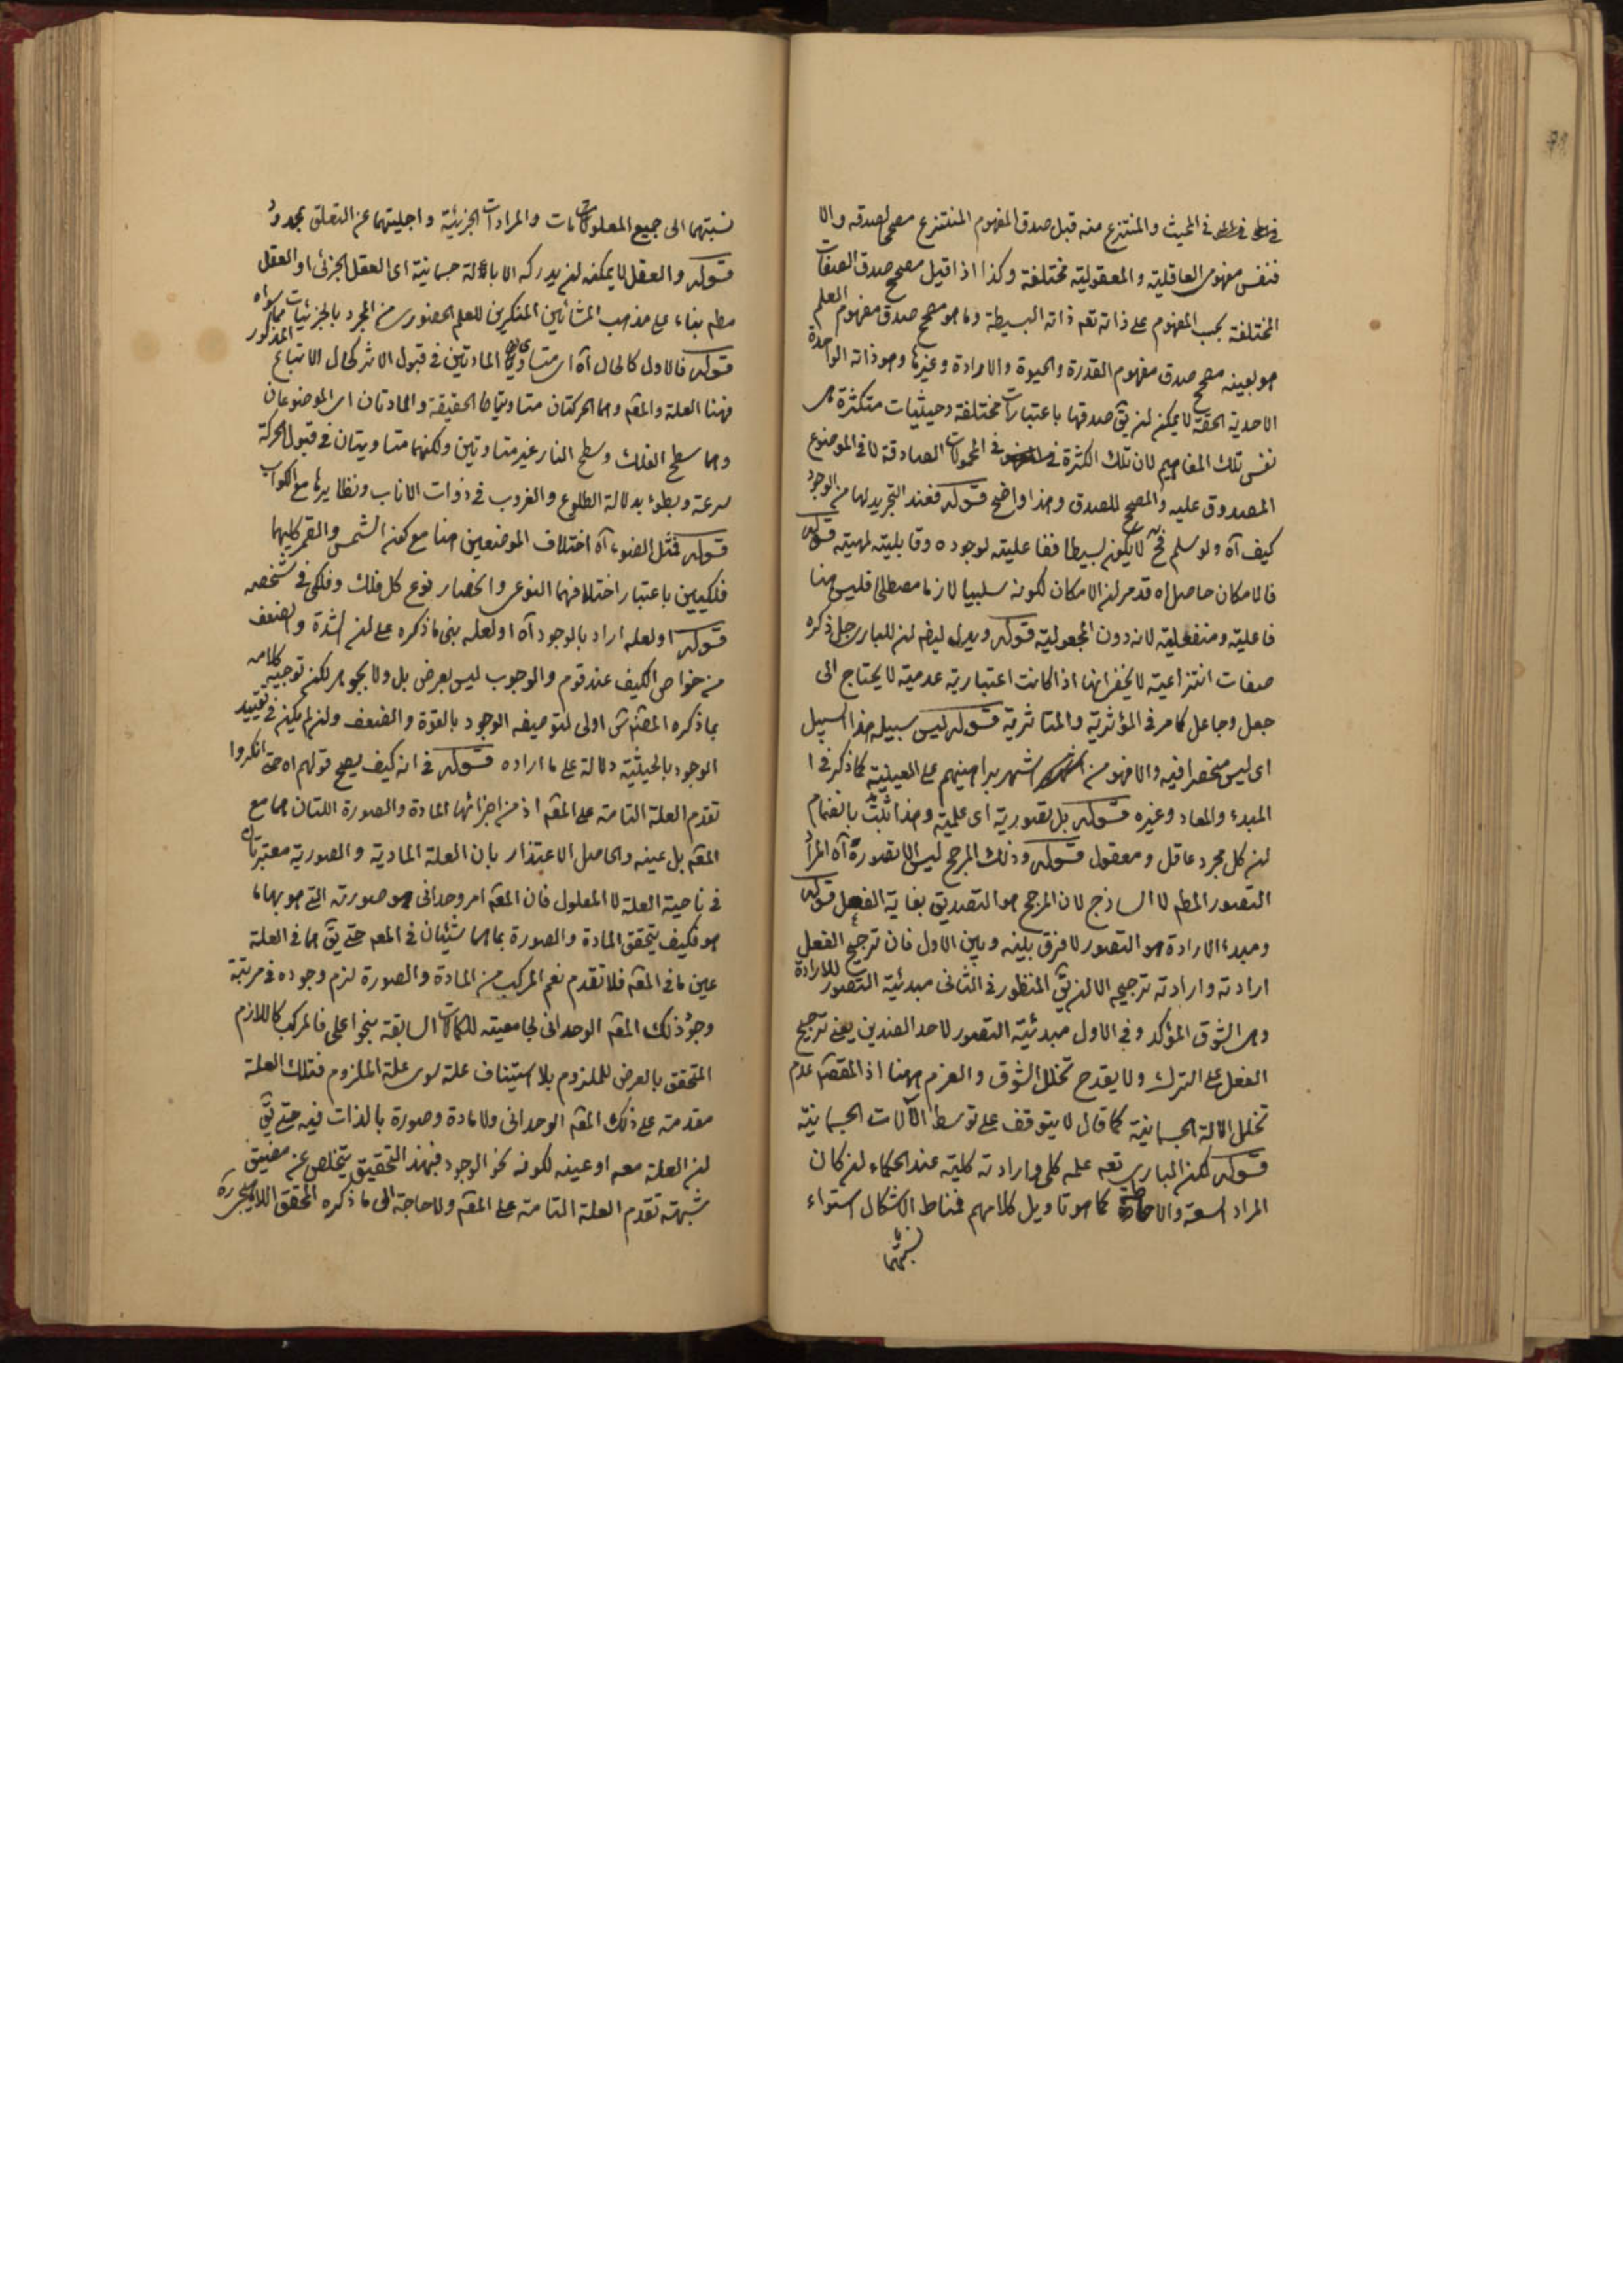 في الحيث والمنتزع منه قبل صدق المفهوم المنتزع مصحح لصدقه والا
فنفس مفهومى العاقلية والمعقولية مختلفة وكذا اذا قيل مصحح صدق الصفات
المختلفة بحسب المفهوم على ذاته تعه ذاته البسيطة وما هو مصحح صدق مفهوم العلم
هو بعينه مصحح صدق مفهوم القدرة والحيوة والارادة وغيرها وهو ذاته الواحدة
الاحدية الحقة لا يمكن ان يق صدقها باعتبارات مختلفة وحيثيات متكثرة هى
نفس تلك المفاهيم لان تلك الكثرة في المحمولات الصادقة لا في الموضوع
المصدوق عليه والمصحح للصدق وهذا واضح قوله فعند التجريد لها من الوجود
كيف آه ولو سلم فح لا يكون بسيطا ففاعليته لوجوده وقابليته لمهيته قوله
فالامكان حاصل اه قد مر ان الامكان لكونه سلبيا لازما مصطلحا فليس هنا
فاعلية ومنفعلية لانه دون المجعولية قوله ويدل ايضا ان للبارى جل ذكره
صفات انتزاعية لا يخفى انها اذا كانت اعتبارية عدمية لا يحتاج الى
جعل وجاعل كما مر في المؤثرية والمتاثرية قوله ليس سبيله هذا السبيل
اى ليس منحصرا فيه والا فهو من اشهر براهينهم على العينية كما ذكر في
المبدء والمعاد وغيره قوله بل تصورية اى علمية وهذا يثبت بانضمام
ان كل مجرد عاقل ومعقول قوله وذلك المرجح ليس الا تصوره آه المراد
التصور المطم لا الساذج لان المرجح هو التصديق بغاية الفعل قوله
ومبدء الارادة هو التصور لا فرق بينه وبين الاول فان ترجيح الفعل
ارادته وارادته ترجيحه الا ان يق المنظور في الثانى مبدئية التصور للارادة
وهى الشوق المؤكد وفي الاول مبدئية التصور لاحد الضدين يعنى ترجيح
الفعل على الترك ولا يقدح تخلل الشوق والعزم ههنا اذ المقصم عدم
تخلل الالة الجسمانية كما قال لا يتوقف على توسط الآلات الجسمانية
قوله لكن البارى تعه علمه كلى وارادته كلية عند الحكماء ان كان
المراد السعة والاحاطة كما هو تاويل كلامهم فمناط الاشكال استواء
نسبتهما
نسبتهما الى جميع المعلومات والمرادات الجزئية واجليتهما عن التعلق بمحدود
قوله والعقل لا يمكنه ان يدركه الا بآلة جسمانية اى العقل الجزئى او العقل
مطم بناء على مذهب المشائين المنكرين للعلم الحضورى من المجرد بالجزئيات مما سواه
قوله فالاول كالحال آه اى متساوى المادتين في قبول الاثر كحال الاتباع المذكور
فهنا العلة والمقم وهما الحركتان متساويتا الحقيقة والمادتان اى الموضوعان
وهما سطح الفلك وسطح النار غير متساويتين ولكنهما متساويتان في قبول الحركة
سرعة وبطوء بدلالة الطلوع والغروب في ذوات الاذناب ونظايرها مع الكواكب
قوله كمثل الضوء آه اختلاف الموضعين هنا مع كون الشمس والقمر كليهما
فلكيين باعتبار اختلافهما النوعى وانحصار نوع كل فلك وفلكى في شخصه
قوله اولعله اراد بالوجود آه اولعله بنى ما ذكره على ان الشدة والضعف
من خواص الكيف عند قوم والوجوب ليس بعرض بل ولا بجوهر لكن توجيه كلامه
بما ذكره المصنف اولى لتوصيفه الوجود بالقوة والضعف وان لم يكن في تقييد
الوجود بالحيثية دلالة على ما اراده قوله في انه كيف يصح قولهم اه حتى انكروا
تقدم العلة التامة على المقم اذ من اجزائها المادة والصورة اللتان هما مع
المقم بل عينه والحاصل الاعتذار بان العلة المادية والصورية معتبرتان
في ناحية العلة لا المعلول فان المقم امر وحدانى هو صورته التى هو بها ما
هو فكيف يتحقق المادة والصورة بما هما شيئان في المعم حتى يق هما في العلة
عين ما في المقم فلا تقدم نعم المركب من المادة والصورة لزم وجوده في مرتبة
وجود ذلك المقم الوحدانى لجامعيته للكمالات السابقة بنحو اعلى فالمركب كاللازم
المتحقق بالعرض للملزوم بلا استيناف علة سوى علة الملزوم فتلك العلة
مقدمة على ذلك المقم الوحدانى ولا مادة وصورة بالذات فيه حتى يق
ان العلة معه او عينه لكونه نحو الوجود فبهذا التحقيق يتخلص عن مضيق
شبهة تقدم العلة التامة على المقم ولا حاجة الى ما ذكره المحقق اللاهيجى ره